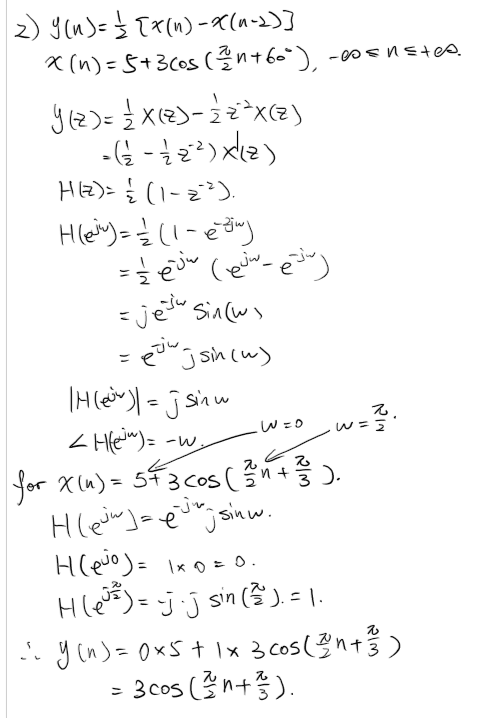 2) y(n)= 1/2 [x(n)-x(n-2)]
x(n)=5+3cos(π/2 n+60°), -∞≤n≤+∞.
Y(z)= 1/2 X(z)- 1/2 z^-2 X(z)
=(1/2 - 1/2 z^-2) X(z)
H(z)= 1/2 (1-z^-2).
H(e^jw)= 1/2 (1-e^-2jw)
= 1/2 e^-jw (e^jw-e^-jw)
= je^-jw sin(w)
= e^-jw j sin(w)
|H(e^jw)|= j sin w
∠H(e^jw)= -w.
w=0 w= π/2.
for x(n)= 5+3cos(π/2 n+ π/3).
H(e^jw)=e^-jw j sin w.
H(e^j0)= 1x0=0.
H(e^jπ/2)= -j·j sin(π/2).=1.
∴ y(n)= 0x5+1x 3cos(π/2 n+ π/3)
= 3cos(π/2 n+ π/3).